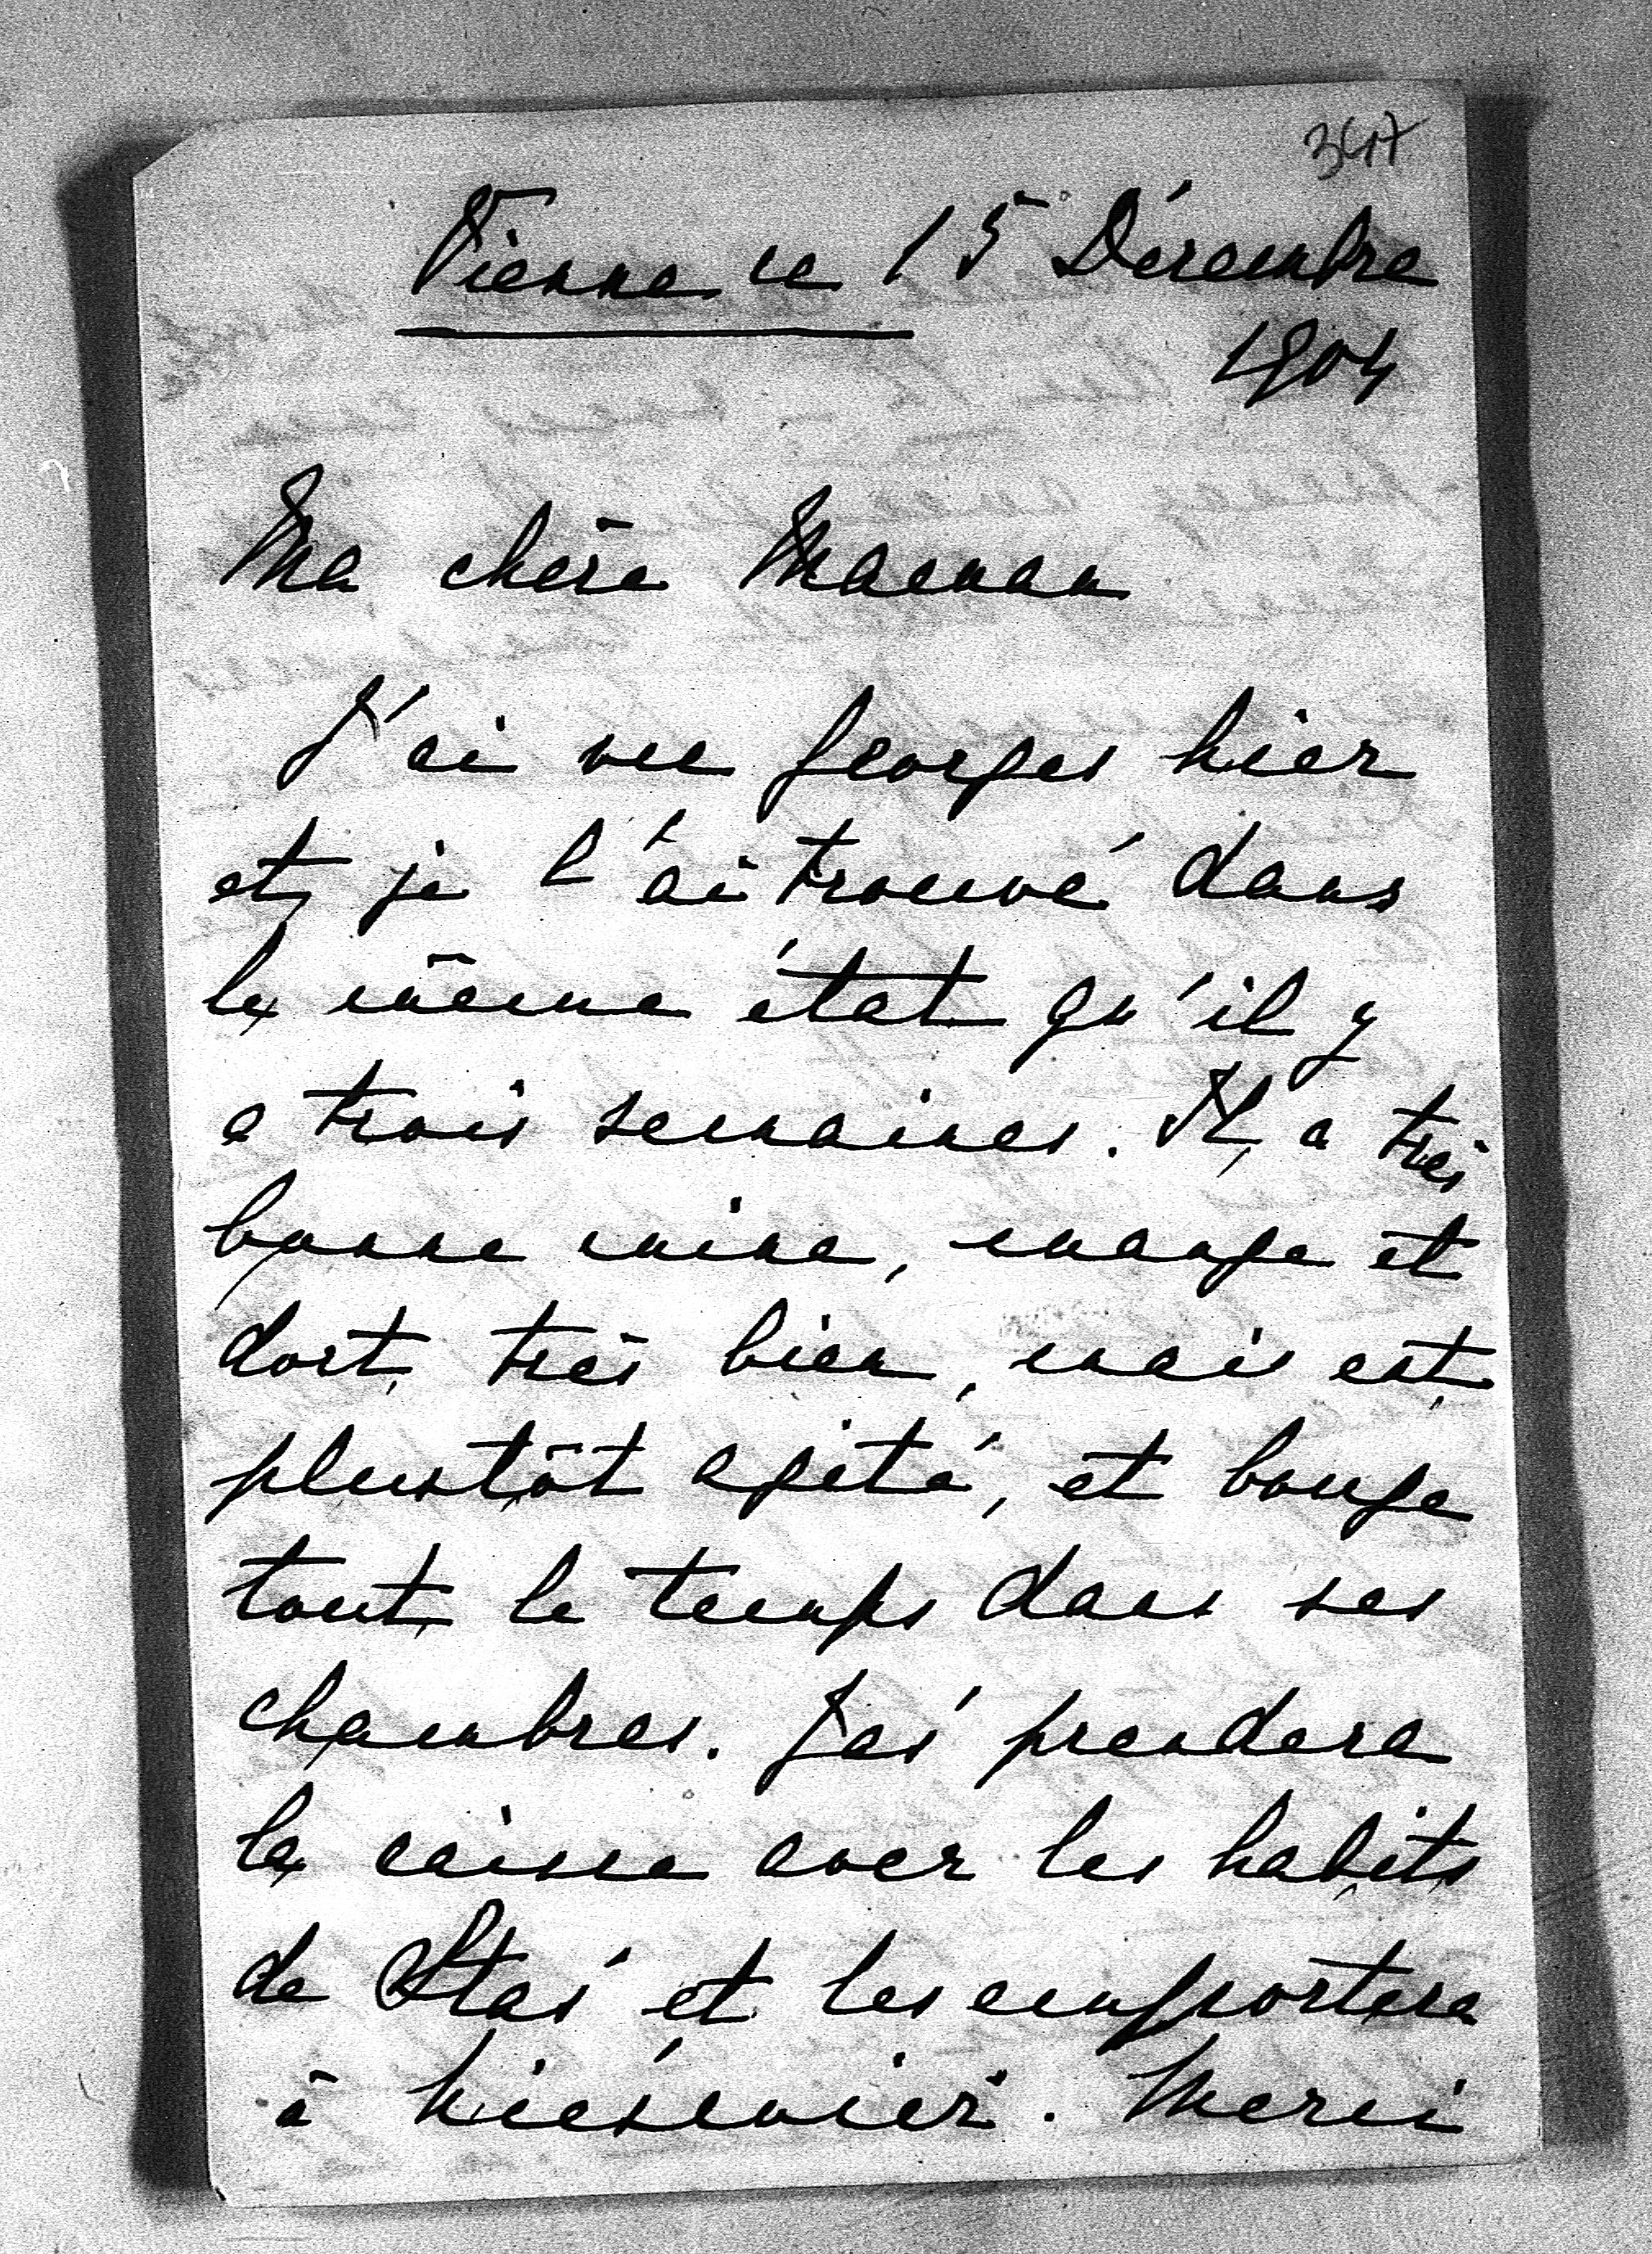 347
Vienne ce 15 Décembre
1904
Ma chère Maman
J'ai vu Georges hier
et je l'ai trouvé dans
le même état qu'il y
a trois semaines. Il a très
bonne mine, mange et
dort très bien, mais est
plustôt agité, et bouge
tout le temps dans ses
chambres. J'ai prendere
la caisse avec les habits
de Stas' et les emportera
à Nieświer. Merci